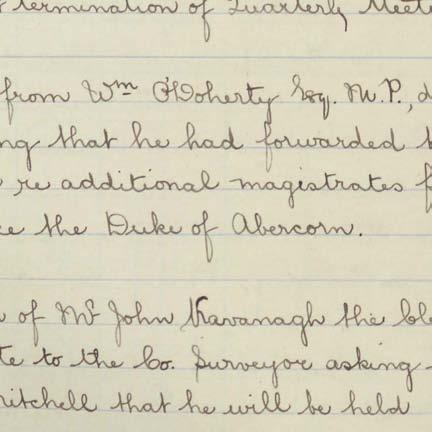 termination of Quarterly Meet
from Wm O'Doherty Esq. M.P., d
ng that he had forwarded t
re additional magistrates f
ce the Duke of Abercorn.
of Mr John Kavanagh the cl
te to the Co. Surveyor asking
Mitchell that he will be held